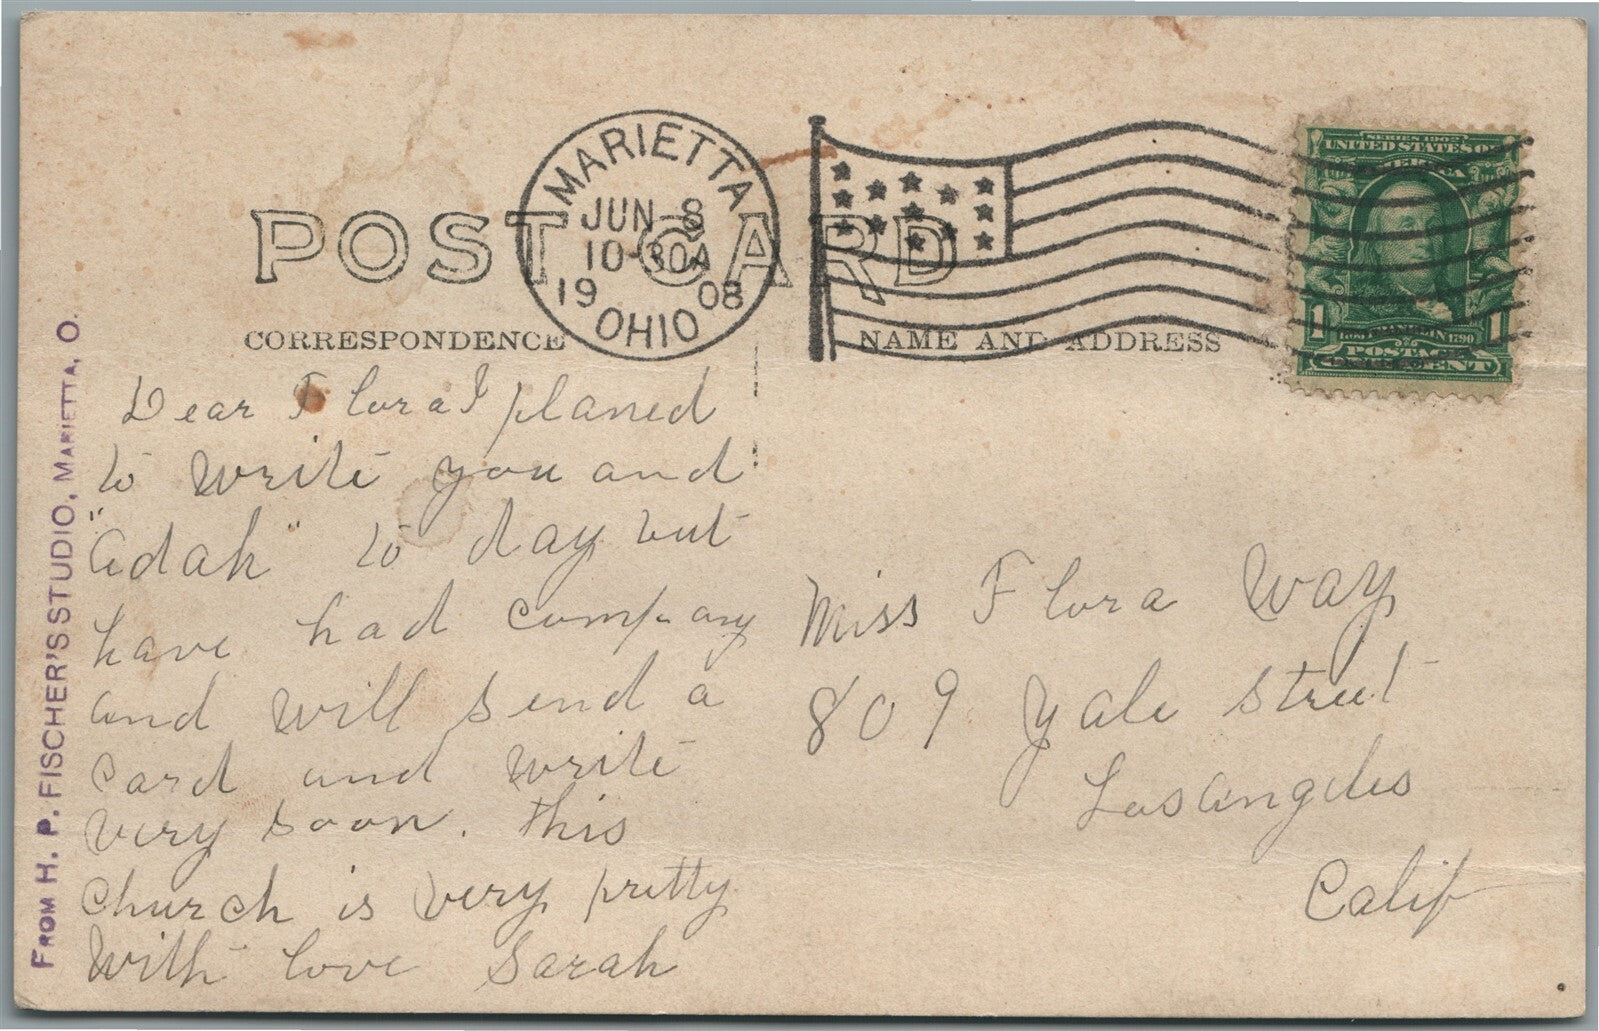 MARIETTA
JUN 8
10-30A
19 08
OHIO
SERIES 1902
UNITED STATES OF
AMERICA
1 1
FRANKLIN 1790
POSTAGE
ONE CENT
POST CARD
CORRESPONDENCE
NAME AND ADDRESS
FROM H. P. FISCHER'S STUDIO, MARIETTA, O.
Dear Flora I planed
to write you and
"Adah" to day but
have had company
and will send a
card and write
very soon. this
church is very pretty
With love Sarah
Miss Flora Way
809 Yale Street
Los Angeles
Calif